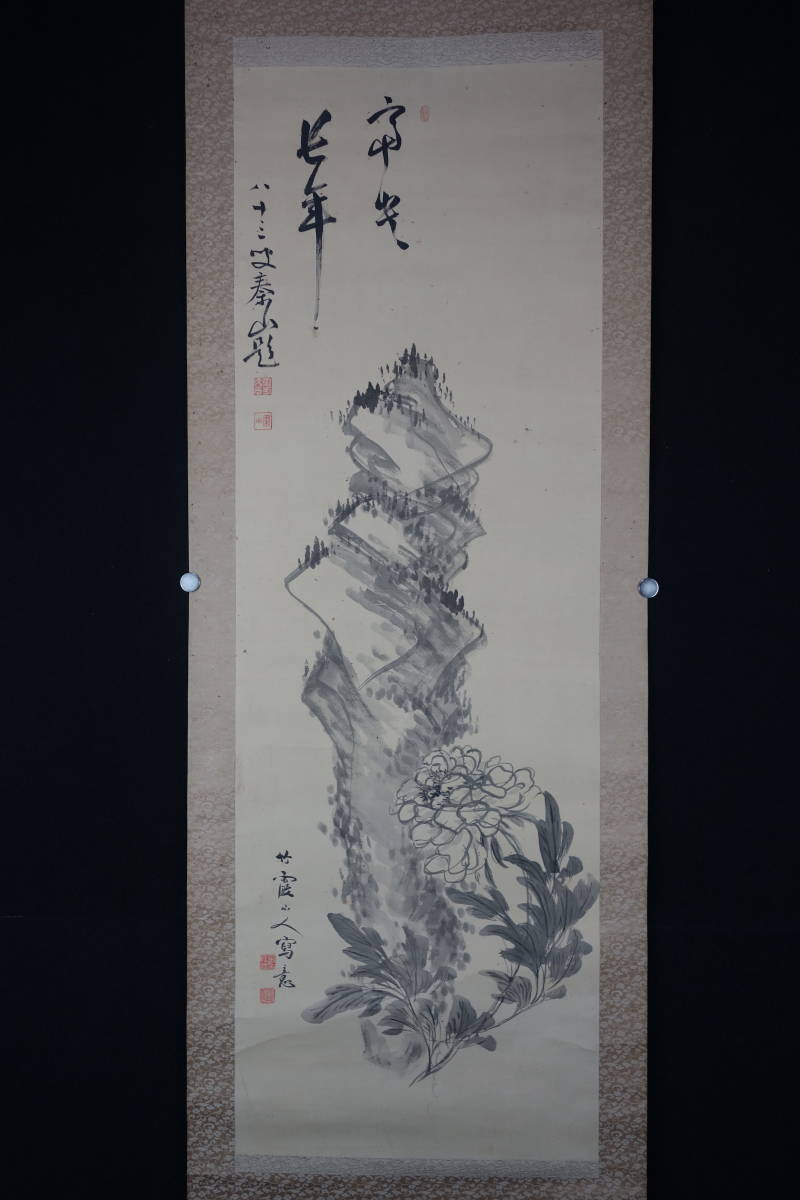 富貴
長年
八十三叟秦山題
竹霞山人寫意